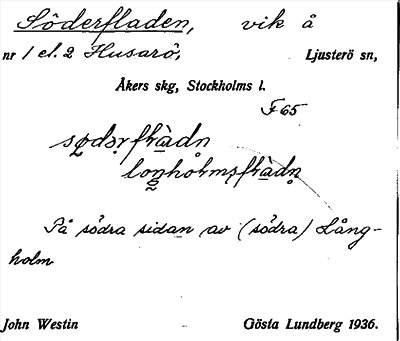 Söderfladen, vik å
nr 1 el. 2 Husarö, Ljusterö sn,
Åkers skg, Stockholms l.
F 65
På södra sidan av (södra) Lång-
holm
John Westin Gösta Lundberg 1936.